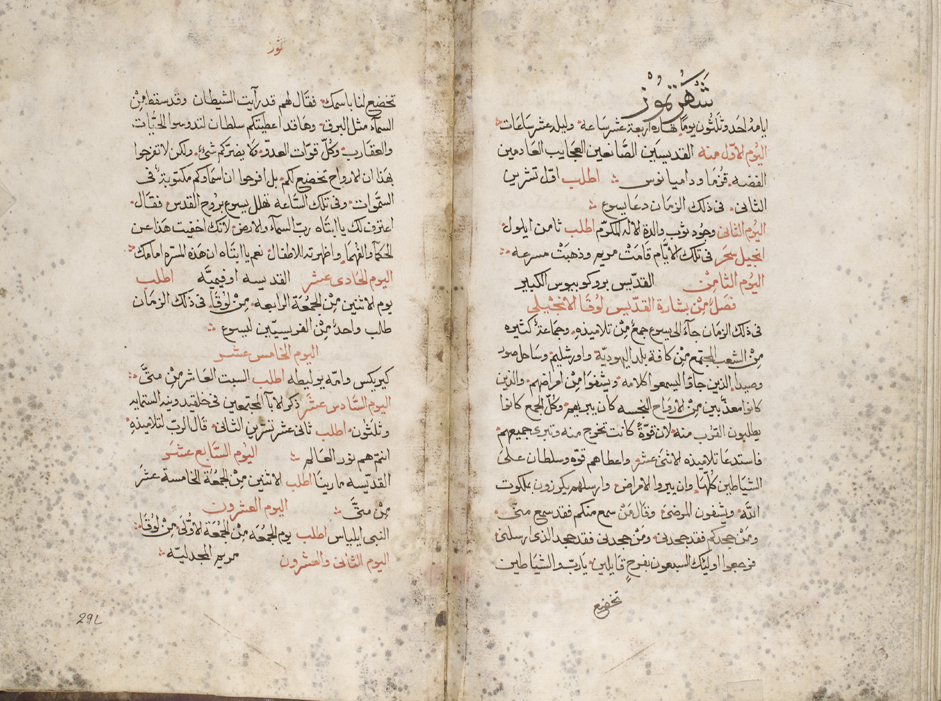 شَهْر تموُز
ايامه احد وثلثون يوماً نهاره اربعة عشر ساعة وليله عشر ساعات
اليوم الاول منه القديسين الصانعين العجايب العادمين
الفضه قزما وداميانوس اطلب اول تشرين
الثاني في ذلك الزمان دعا يسوع
اليوم الثاني وجود ثوب والدة الاله المكرّم اطلب ثامن ايلول
انجيل سحر في تلك الايام قامت مريم وذهبت مسرعه
اليوم الثامن القديس بروكوبيوس الكبير
فصل من بشارة القديس لوقا الانجيلي
في ذلك الزمان جآء الى يسوع جمع من تلاميذه وجماعة كثيره
من الشعب المجتمع من كافة بلد اليهودية واورشليم وساحل صور
وصيدا الذين جاوا ليسمعوا كلامه ويشفوا من امراضهم والذين
كانوا معذبين من الارواح النجسه كان يبريهم وكل الجمع كانوا
يطلبون القرب منه لان قوة كانت تخرج منه وتبري جميعهم
فاستدعا تلاميذه الاثنى عشر واعطاهم قوه وسلطان على
الشياطين كلها وان يبروا الامراض وارسلهم يكرزون بملكوت
الله ويشفون المرضى وقال من سمع منكم فقد سمع مني
ومن جحدكم فقد جحدني ومن جحدني فقد جحد الذي ارسلني
فرجعوا اوليك السبعون بفرح قايلين يا رب والشياطين
تخضع
تموز
تخضع لنا باسمك فقال لهم قد رآيت الشيطان وقد سقط من
السمآء مثل البرق وهانذا اعطيتكم سلطان لتدوسوا الحيات
والعقارب وكل قوات العدو ولا يضركم شيء ولكن لا تفرحوا
بهذا ان الارواح تخضع لكم بل افرحوا ان اسماوكم مكتوبة في
السموات وفي تلك الساعة هلل يسوع بروح القدس وقال
اعترف لك يا ابتاه رب السمآء والارض لانك اخفيت هذا عن
الحكمآ والفهما واظهرته للاطفال نعم يا ابتاه ان هذه المسره امامك
اليوم الحادي عشر القديسه اوفيميّه اطلب
يوم الاثنين من الجمعة الرابعه من لوقا في ذلك الزمان
طلب واحد من الفريسيين ليسوع
اليوم الخامس عشر
كيريكس وامه يوليطه اطلب السبت العاشر من متى
اليوم السادس عشر ذكر الابآ المجتمعين في خلقيدونيه الستمايه
وثلثون اطلب ثاني عشر تشرين الثاني قال الرب لتلاميذه
انتم هم نور العالم اليوم السابع عشر
القديسه مارينا اطلب الاثنين من الجمعة الخامسة عشر
من متى اليوم العشرون
النبي ايلياس اطلب يوم الجمعة من الجمعة الاولى من لوقا
اليوم الثاني والعشرون مريم المجدليّه